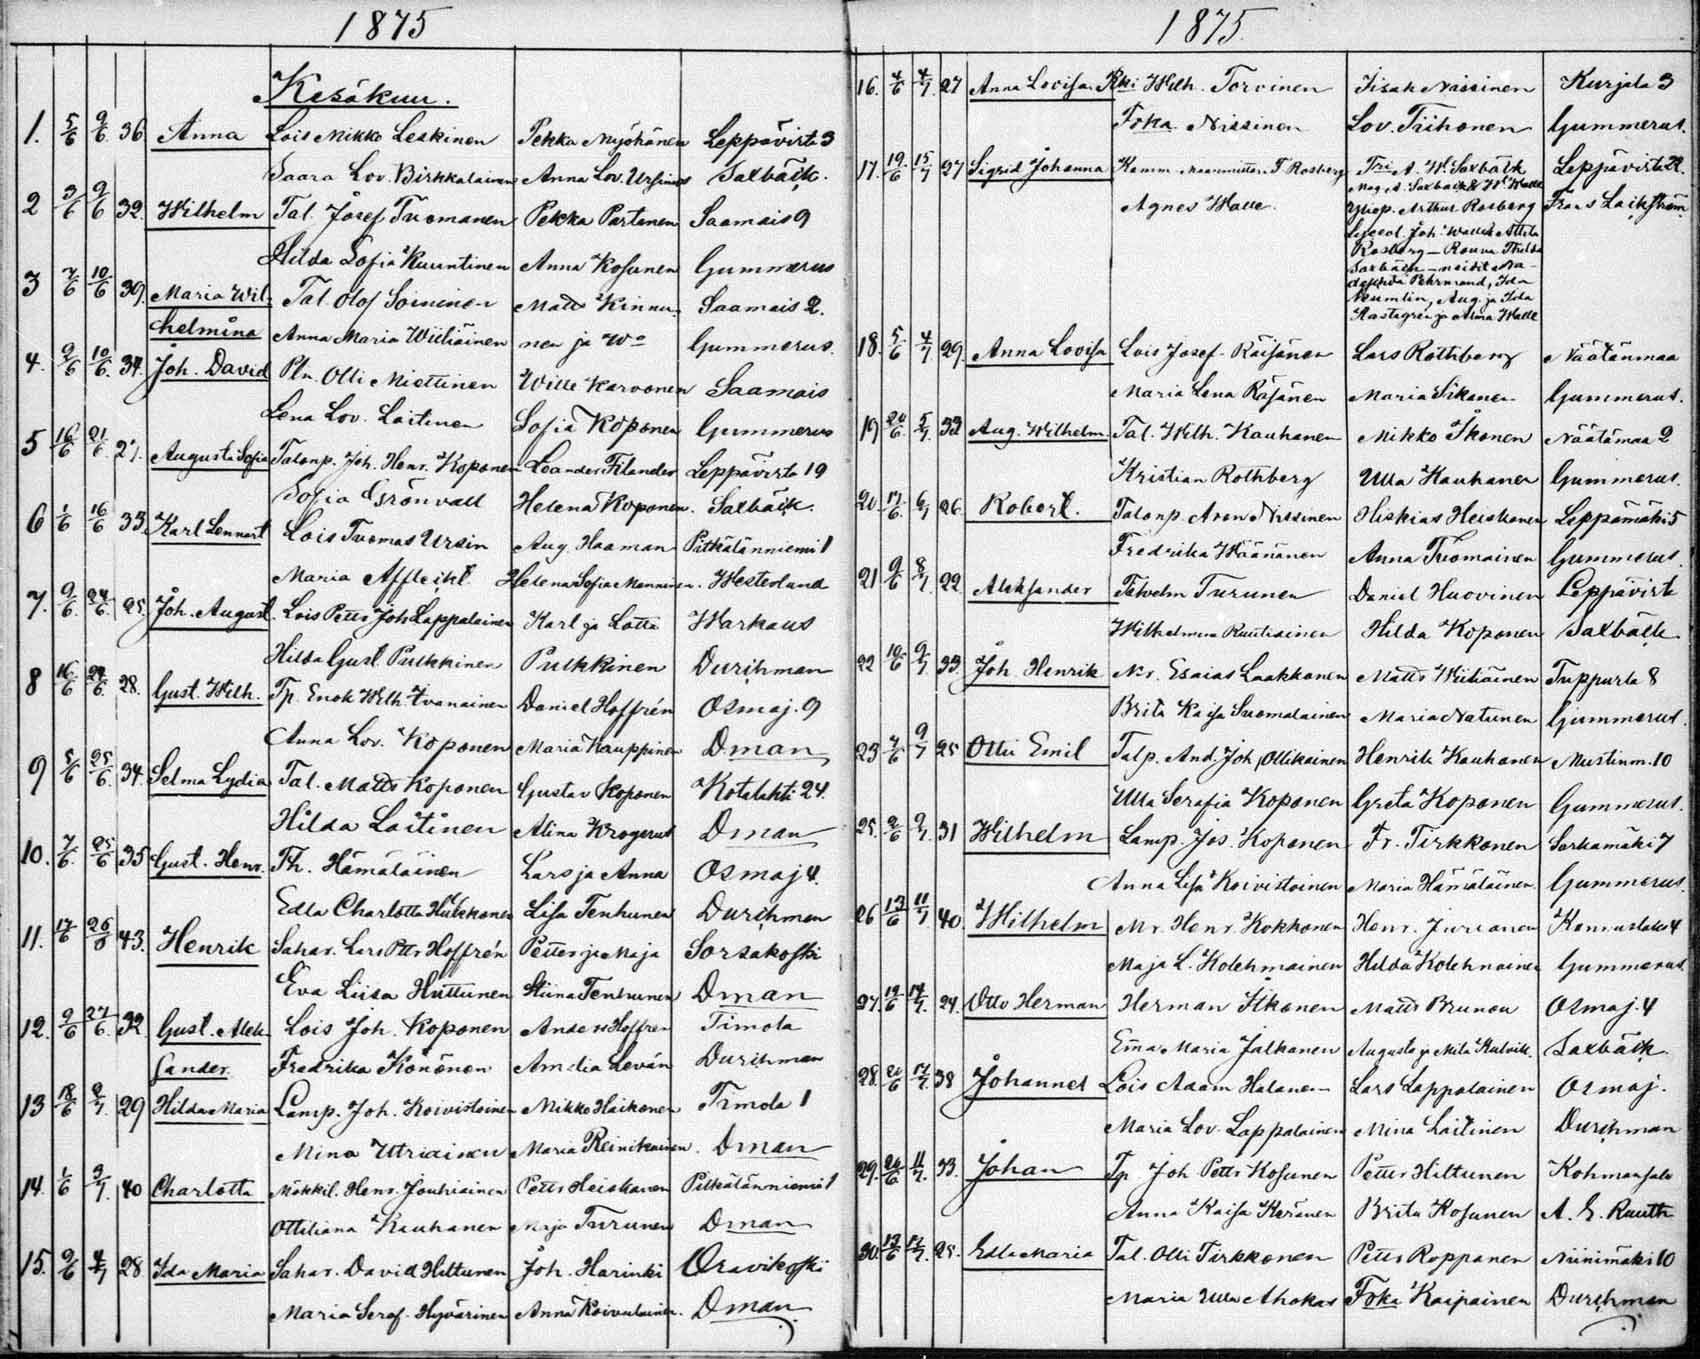 1875
Kesäkuu.
1. 5/6 9/6 36 Anna Lois Mikko Leskinen Pekka Myöhänen Leppävirta 3
Saara Lov. Birkkalainen Anna Lov. Ursinus Saxbäck.
2 3/6 9/6 32. Wilhelm Tal. Josef Tuomanen Pekka Partanen Saamais 9
Hilda Sofia Kuuntinen Anna Kosunen Gummerus
3 7/6 10/6 39. Maria Wil- Tal. Olof Soininen Matts Kinnu- Saamais 2.
helmina Anna Maria Wiiliäinen nen ja Wo Gummerus.
4. 9/6 10/6 34. Joh. David Pln. Olli Miettinen Wille Karvonen Saamais
Lena Lov. Laitinen Sofia Koponen Gummerus
5 16/6 21/6 27. Augusta Sofia Talonp. Joh. Henr. Koponen Leander Filander Leppävirta 19
Sofia Grönvall Helena Koponen. Saxbäck.
6 1/6 16/6 33. Karl Lennart Lois Tuomas Ursin Aug. Haaman Pitkälänniemi 1
Maria Affleckt. Helena Sofia Manninen. Westerlund
7. 9/6 24/6 25. Joh. August. Lois Petts Joh Lappalainen Karl ja Lotta Warkaus
Hilda Gust. Pulkkinen Pulkkinen Durchman
8 16/6 24/6 28. Gust. Wilh. Tp. Enok Wilh. Ivanainen Daniel Hoffrén Osmaj. 9
Anna Lov. Koponen Maria Kauppinen Dman
9 5/6 25/6 34. Selma Lydia Tal. Matts Koponen Gustav Koponen Kotalahti 24.
Hilda Laitinen Alina Krogerus Dman
10. 7/6 25/6 35 Gust. Henr. Th. Hämäläinen Lars ja Anna Osmaj 4.
Edla Charlotta Hukkanen Lisa Tenhunen Durchman
11. 17/6 26/6 43. Henrik Sahar. Lars Petts Hoffrén Petter ja Maja Sorsakoski
Eva Liisa Huttunen Stiina Tenhunen Dman
12. 9/6 27/6 32 Gust. Alek- Lois Joh. Koponen Anders Hoffren Timola
sander Fredrika Könönen Amalia Leván Durchman
13 18/6 2/7 29 Hilda Maria Lamp. Joh. Koivistoinen Mikko Haikonen Timola 1
Mina Utriainen Maria Reinikainen. Dman
14. 1/6 3/7 40 Charlotta Mökkil. Henr. Jouhiainen Petts Heiskanen Pitkälänniemi 1
Ottiliana Kauhanen Maja Turunen Dman
15. 9/6 4/7 28 Ida Maria Sahar. David Hiltunen Joh. Harinki Oravikoski
Maria Seraf. Hyvärinen Anna Koivulainen. Dman
1875
16. 4/6 4/7 27 Anna Lovisa Rki Wilh. Torvinen Iisak Nissinen Kurjala 3
Fρka Nissinen Lov. Tiihonen Gummerus.
17. 19/6 15/7 27 Sigrid Johanna F Rosberg Leppävirta 22.
Agnes Walle. Arthur Rosberg Frans Laihström
Rosberg – Rouva Thilda
Saxbäck – neidit
Pehrmand, Ida
Neumlin, Aug. ja Ida
Hastegren ja Alma Walle
18. 5/6 4/7 29. Anna Lovisa Lois Josef Räisänen Lars Rothberg Näätänmaa
Maria Lena Räsänen Maria Sikanen Gummerus.
19 20/6 5/7 33 Aug. Wilhelm Tal. Wilh. Kauhanen Mikko Ikonen Näätämaa 2
Kristian Rothberg Ulla Kauhanen Gummerus.
20. 17/6 6/7 26 Robert. Talonp Aron Nissinen Hiskias Heiskanen Leppämäki 5
Fredrika Väänänen Anna Tuomainen Gummerus.
21 9/6 8/7 22. Aleksander Turunen Daniel Huovinen Leppävirta
Wilhelmina Ruutiainen Hilda Koponen Saxbäck
22 10/6 9/7 33. Joh. Henrik Esaias Laakkonen Matts Wiiliäinen Tuppurla 8
Brita Kaisa Suomalainen Maria Natunen Gummerus.
23 7/6 9/7 25 Olli Emil Talp. And. Joh. Ollikainen Henrik Kauhanen Mustinm. 10
Ulla Serafia Koponen Greta Koponen Gummerus.
25. 2/6 9/7 31 Wilhelm Lamp. Jos. Koponen Fr. Tirkkonen Sarkamäki 7
Anna Lisa Koivistoinen Maria Hämäläinen Gummerus.
26 13/6 11/7 40. Wilhelm Mr. Henr. Kokkonen Henr. Jurvanen 4
Maja L. Kolehmainen Hilda Kolehmainen Gummerus
27. 19/6 14/7 24. Otto Herman Herman Ikonen Matts Brunou Osmaj. 4
Emma Maria Jalkanen Augusta ja Mila Hulvik. Saxbäck.
28. 21/6 17/7 38 Johannes Lois Adam Halanen Lars Lappalainen Osmaj.
Maria Lov. Lappalainen Mina Laitinen Durchman
29. 26/6 11/7 33. Johan Tp Joh Petts Kosunen Petts Hiltunen Kohmansalo
Anna Kaisa Keränen Brita Kosunen A. E. Ruuth
30. 13/6 17/7 25. Edla Maria Tal. Olli Tirkkonen Petts Roppanen Niinimäki 10
Maria Ulla Ahokas Fρka Kaipainen Durchman